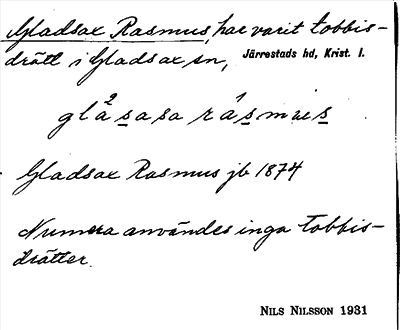 Gladsax Rasmus, har varit tobbis-
drätt i Gladsax sn, Järrestads hd, Krist. l.
glà²sasa rá¹smus
Gladsax Rasmus jb 1874
Numera användes inga tobbis-
drätter.
NILS NILSSON 1931